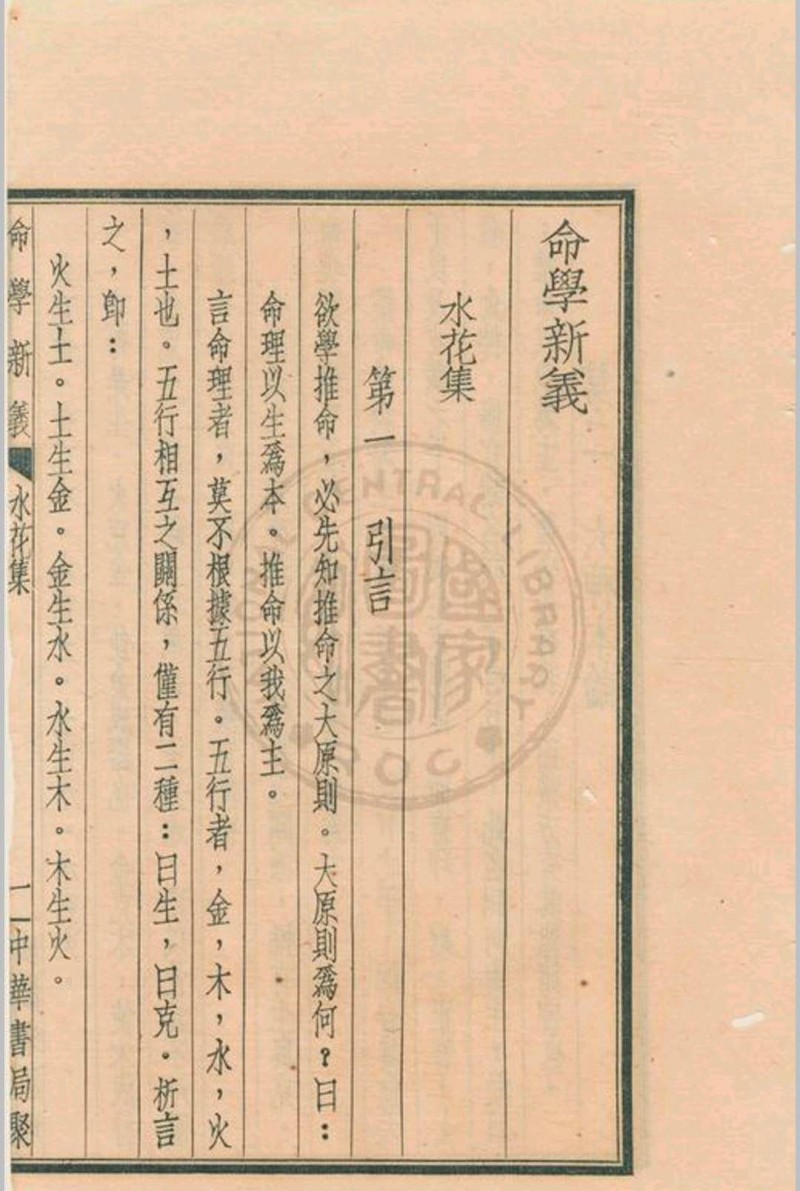 命學新義
水花集
第一 引言
欲學推命，必先知推命之大原則。大原則爲何？曰：
命理以生爲本。推命以我爲主。
言命理者，莫不根據五行。五行者，金，木，水，火
，土也。五行相互之關係，僅有二種：曰生，曰克。析言
之，卽：
火生土。土生金。金生水。水生木。木生火。
命學新義 水花集 一 中華書局聚
國家圖書館
CENTRAL LIBRARY
ROC